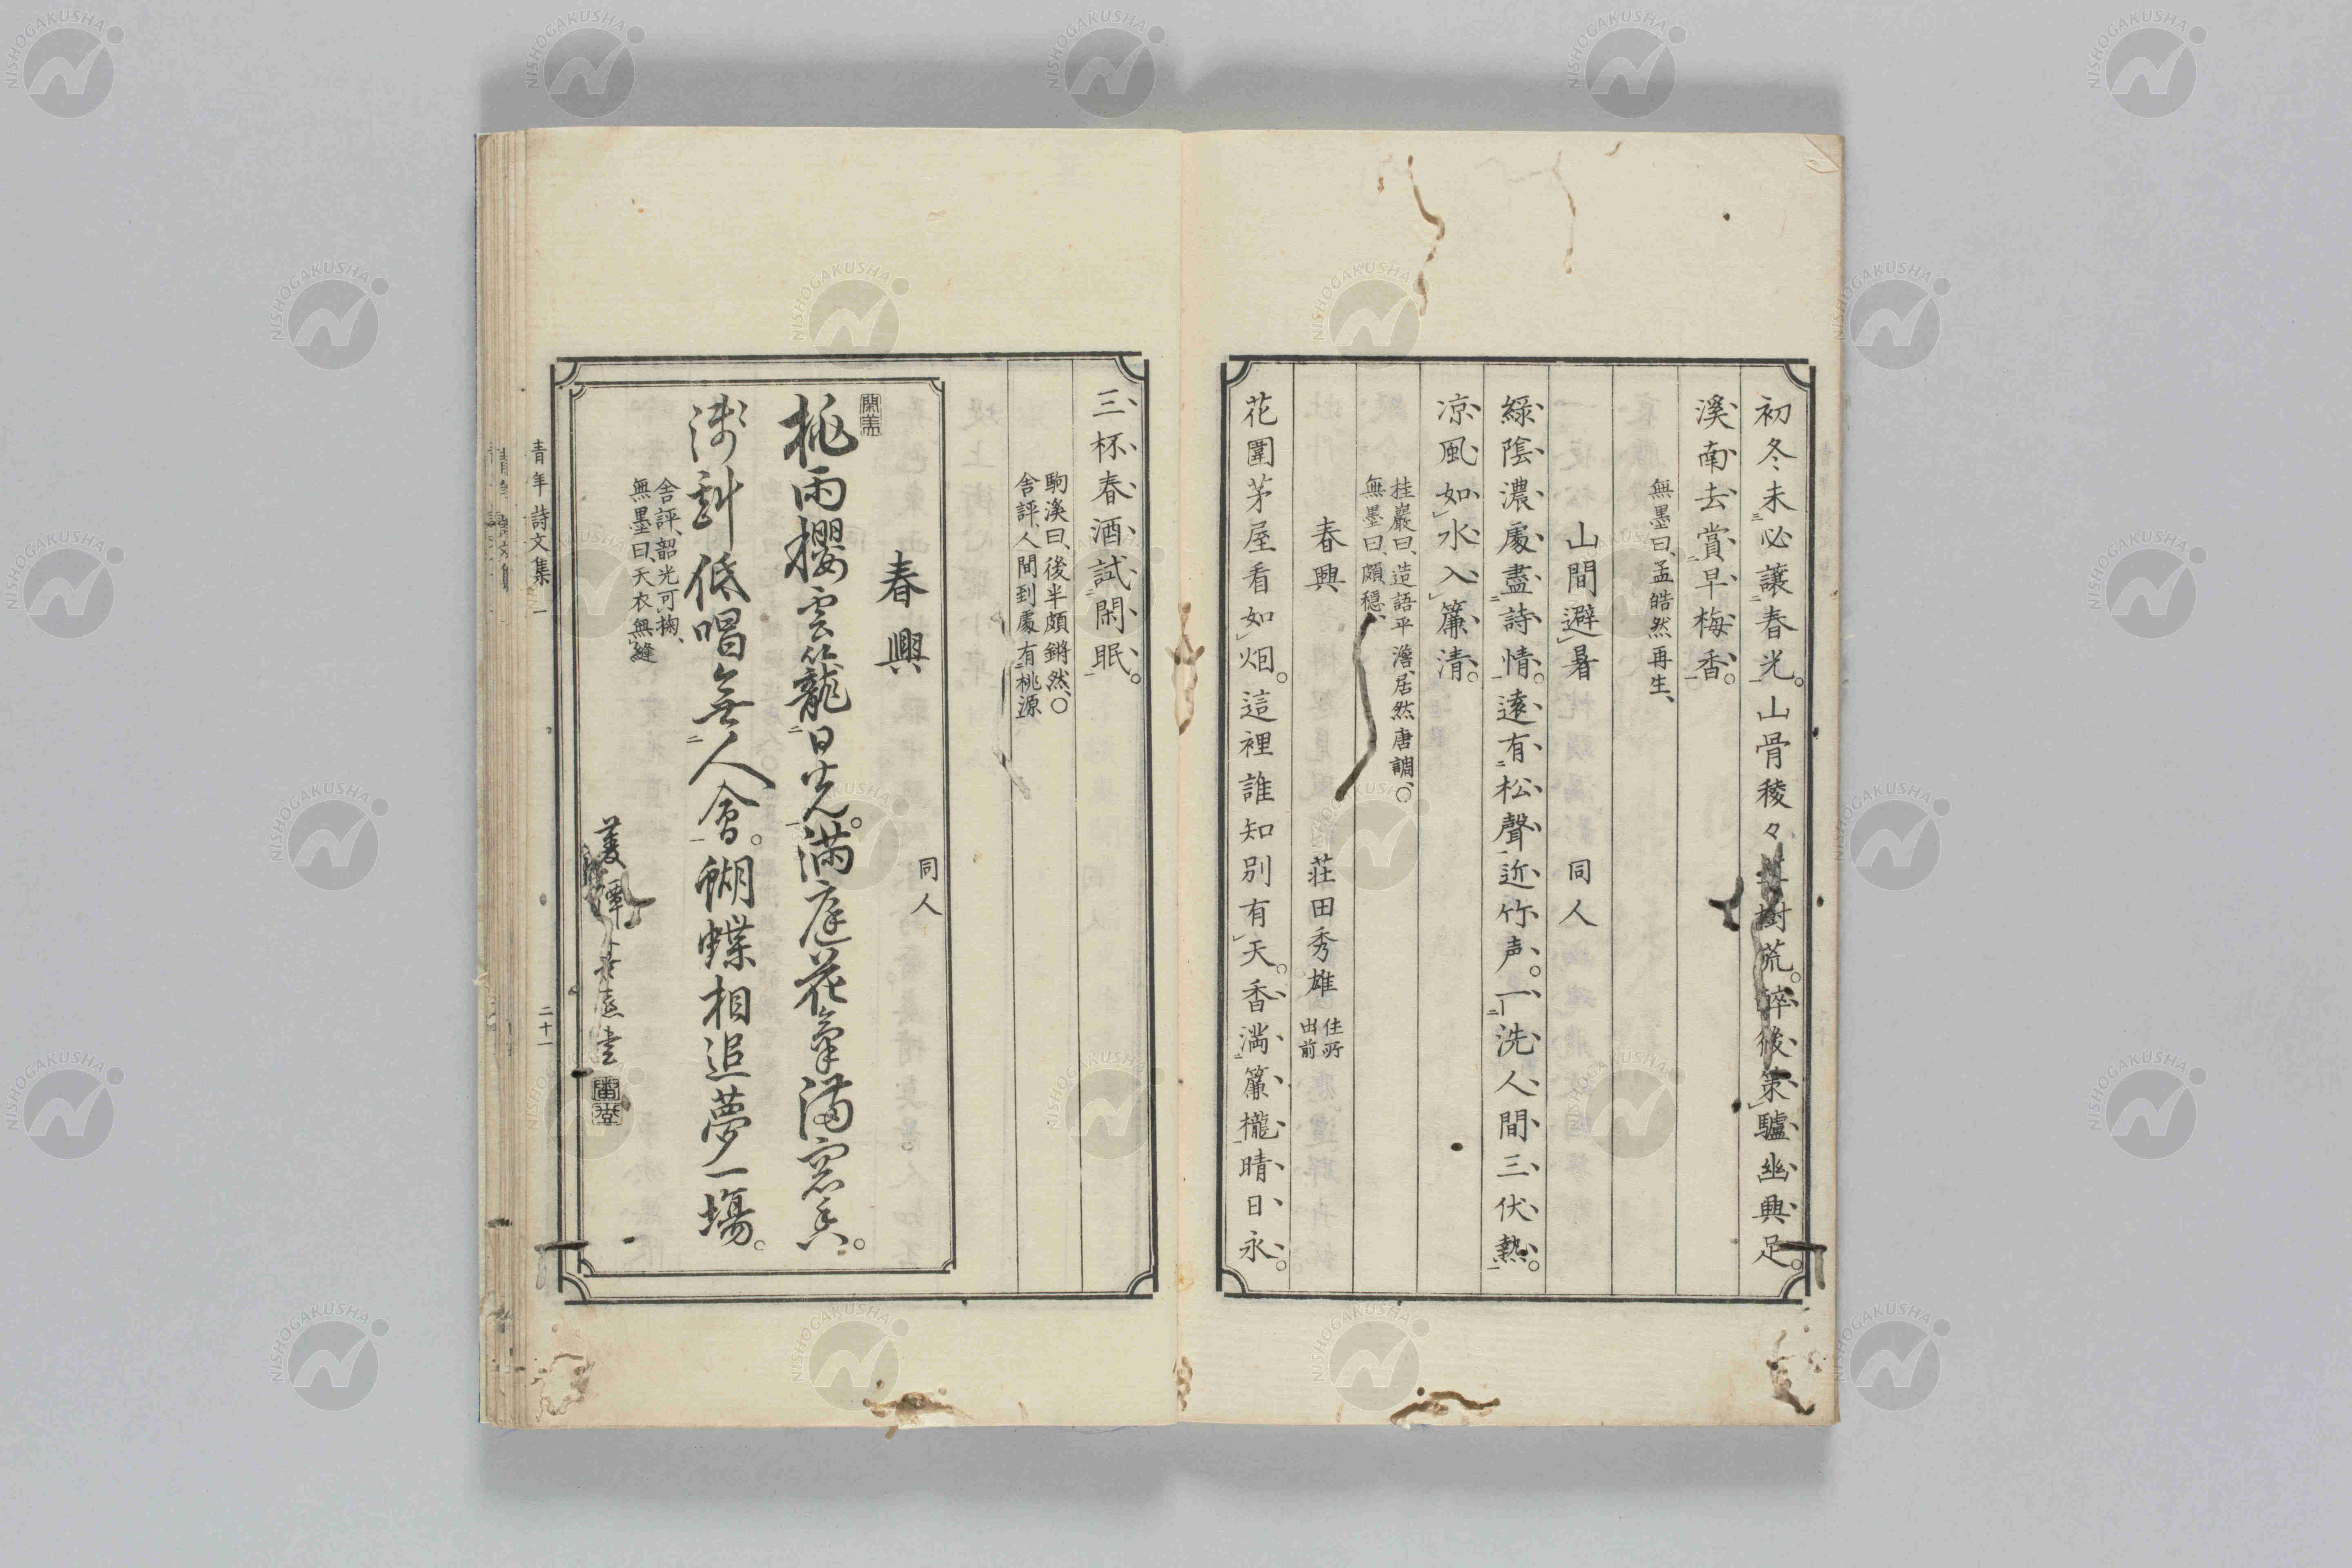 初冬未必讓春光。山骨稜々樹荒。醉後策驢幽興足。
溪南去賞早梅香。
無墨曰、孟皓然再生、
山間避暑 同人
綠陰濃處盡詩情。遠有松聲近竹声。一洗人間三伏熱。
凉風如水入簾清。
桂巖曰、造語平澹、居然唐調、○
無墨曰、頗穩、
春興 莊田秀雄 住所出前
花圍茅屋看如烟。這裡誰知別有天。香滿簾櫳晴日永。
三杯春酒試閑眠。
駒溪曰、後半頗鏘然、○
舎評、人間到處有桃源
春興 同人
桃雨櫻雲籠日光。滿庭花氣滿窓香。
淺斟低唱無人會。蝴蝶相追夢一塲。
舎評、韶光可掬、
無墨曰、天衣無縫
青年詩文集 一 二十一
NISHOGAKUSHA